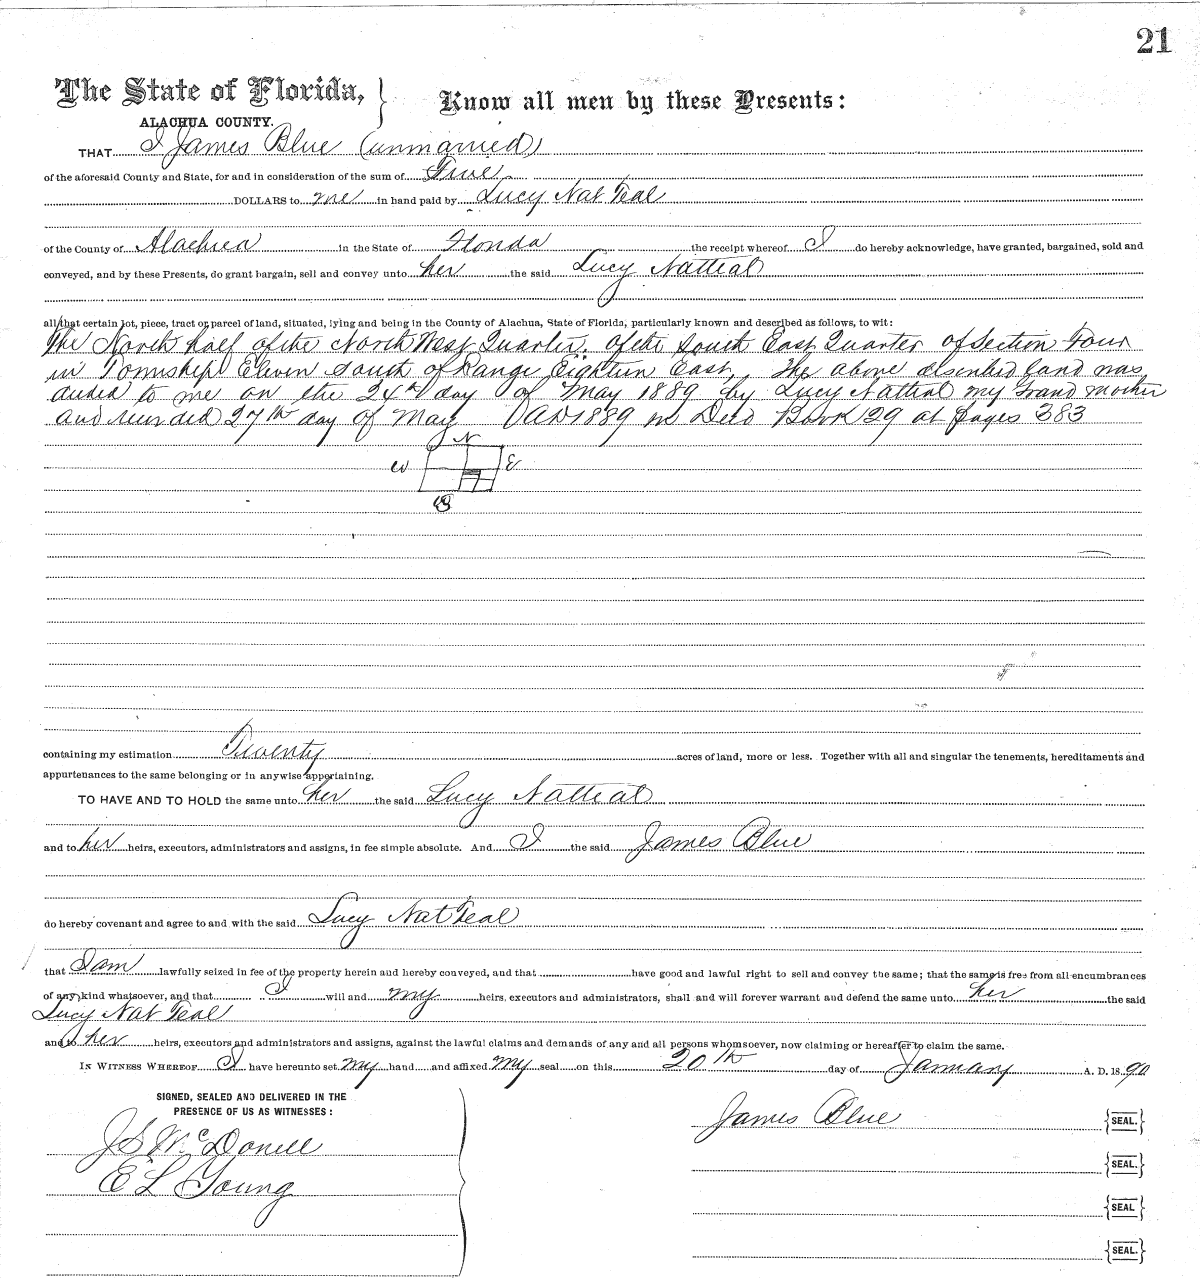 21
The State of Florida,
ALACHUA COUNTY.
Know all men by these Presents:
THAT I James Blue (unmarried)
of the aforesaid County and State, for and in consideration of the sum of Five
DOLLARS to me in hand paid by Lucy Nat Teal
of the County of Alachua in the State of Florida the receipt whereof I do hereby acknowledge, have granted, bargained, sold and
conveyed, and by these Presents, do grant bargain, sell and convey unto her the said Lucy Natteal
all that certain lot, piece, tract or parcel of land, situated, lying and being in the County of Alachua, State of Florida, particularly known and described as follows, to wit:
The North half of the North West Quarter. of the South East Quarter of Section Four
in Township Eleven South of Range Eighteen East, The above described land was
deeded to me on the 24th day of May 1889 by Lucy Natteal my Grand mother
and recorded 27th day of May AD 1889 in Deed Book 29 at pages 383
N
W E
S
containing my estimation Twenty acres of land, more or less. Together with all and singular the tenements, hereditaments and
appurtenances to the same belonging or in anywise appertaining.
TO HAVE AND TO HOLD the same unto her the said Lucy Natteal
and to her heirs, executors, administrators and assigns, in fee simple absolute. And I the said James Blue
do hereby covenant and agree to and with the said Lucy Nat Teal
that I am lawfully seized in fee of the property herein and hereby conveyed, and that have good and lawful right to sell and convey the same; that the same is free from all encumbrances
of any kind whatsoever, and that I will and my heirs, executors and administrators, shall and will forever warrant and defend the same unto her the said
Lucy Nat Teal
and to her heirs, executors and administrators and assigns, against the lawful claims and demands of any and all persons whomsoever, now claiming or hereafter to claim the same.
IN WITNESS WHEREOF I have hereunto set my hand and affixed my seal on this 20th day of January A. D. 1890
SIGNED, SEALED AND DELIVERED IN THE
PRESENCE OF US AS WITNESSES:
James Blue {SEAL.}
J S McDonell
{SEAL.}
E L Young
{SEAL}
{SEAL.}